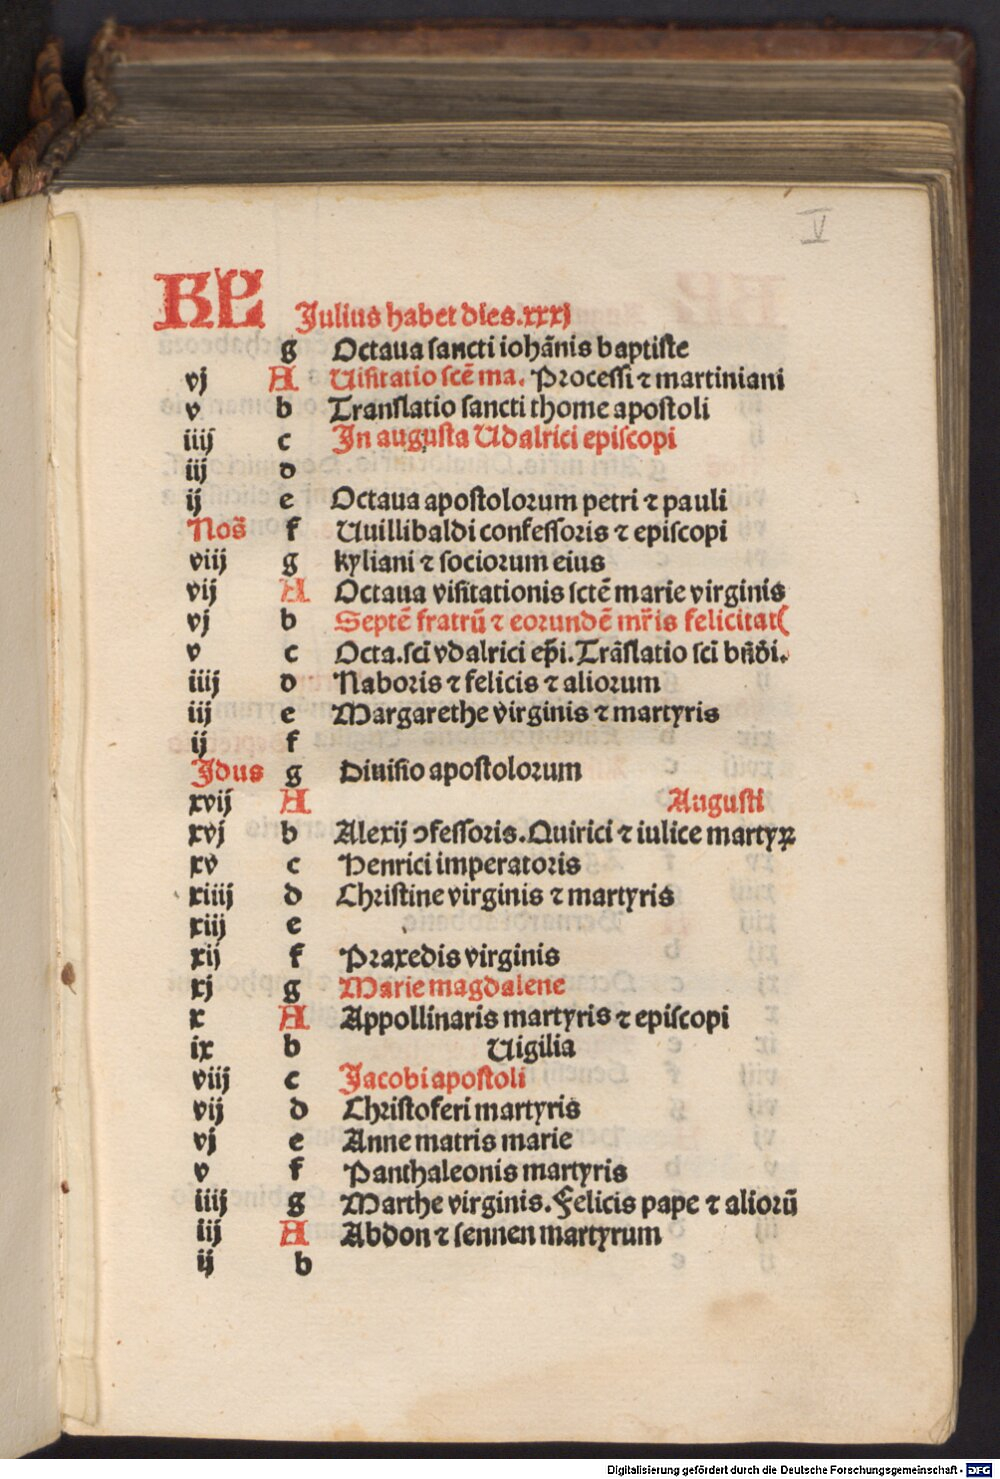 V
KL Julius habet dies.xxxj
g Octaua sancti iohãnis baptiste
vj A Uisitatio scẽ ma. Processi ⁊ martiniani
v b Translatio sancti thome apostoli
iiij c In augusta Udalrici episcopi
iij d
ij e Octaua apostolorum petri ⁊ pauli
Nos̃ f Uuillibaldi confessoris ⁊ episcopi
viij g kyliani ⁊ sociorum eius
vij A Octaua visitationis sctẽ marie virginis
vj b Septẽ fratrũ ⁊ eorundẽ mr̃is felicitatꝭ
v c Octa.sci̇̃ vdalrici ep̃i.Trãslatio sci̇̃ bñdi.
iiij d Naboris ⁊ felicis ⁊ aliorum
iij e Margarethe virginis ⁊ martyris
ij f
Idus g Diuisio apostolorum
xvij A Augusti
xvj b Alexij ꝯfessoris.Quirici ⁊ iulice martyꝝ
xv c Henrici imperatoris
xiiij d Christine virginis ⁊ martyris
xiij e
xij f Praxedis virginis
xj g Marie magdalene
x A Appollinaris martyris ⁊ episcopi
ix b Uigilia
viij c Jacobi apostoli
vij d Christoferi martyris
vj e Anne matris marie
v f Panthaleonis martyris
iiij g Marthe virginis.Felicis pape ⁊ aliorũ
iij A Abdon ⁊ sennen martyrum
ij b
Digitalisierung gefördert durch die Deutsche Forschungsgemeinschaft - DFG